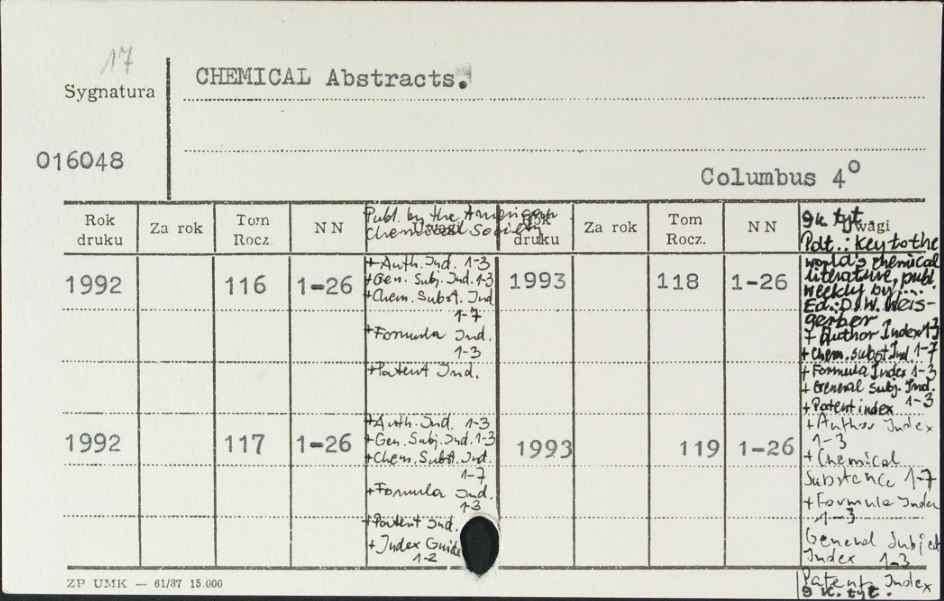 17
Sygnatura
CHEMICAL Abstracts.
016048
Columbus 4°
Rok druku
Za rok
Tom Rocz.
NN
Publ. by the American
Chemical Society
Uwagi
Rok druku
Za rok
Tom Rocz.
NN
Uwagi
9 k. tyt.
Pdt.: Key to the
world's chemical
literature, publ.
weekly by ...
Ed.: D. W. Weis-
gerber
1992
116
1-26
+Auth. Ind. 1-3
+Gen. Subj. Ind. 1-3
+Chem. Subst. Ind
1-7
+Formula Ind.
1-3
+Patent Ind.
1993
118
1-26
+ Author Index 1-3
+ Chem. subst. Ind. 1-7
+ Formula Index 1-3
+ General Subj. Ind.
1-3
+ Patent index
1992
117
1-26
+Auth. Ind. 1-3
+Gen. Subj. Ind. 1-3
+Chem. Subst. Ind.
1-7
+Formula Ind.
1-3
+Patent Ind.
+ Index Guide
1-2
1993
119
1-26
+ Author Index
1-3
+ Chemical
Substance 1-7
+ Formula Index
1-3
General Subject
Index 1-3
Patent Index
9 k. tyt.
ZP UMK — 61/87 15.000